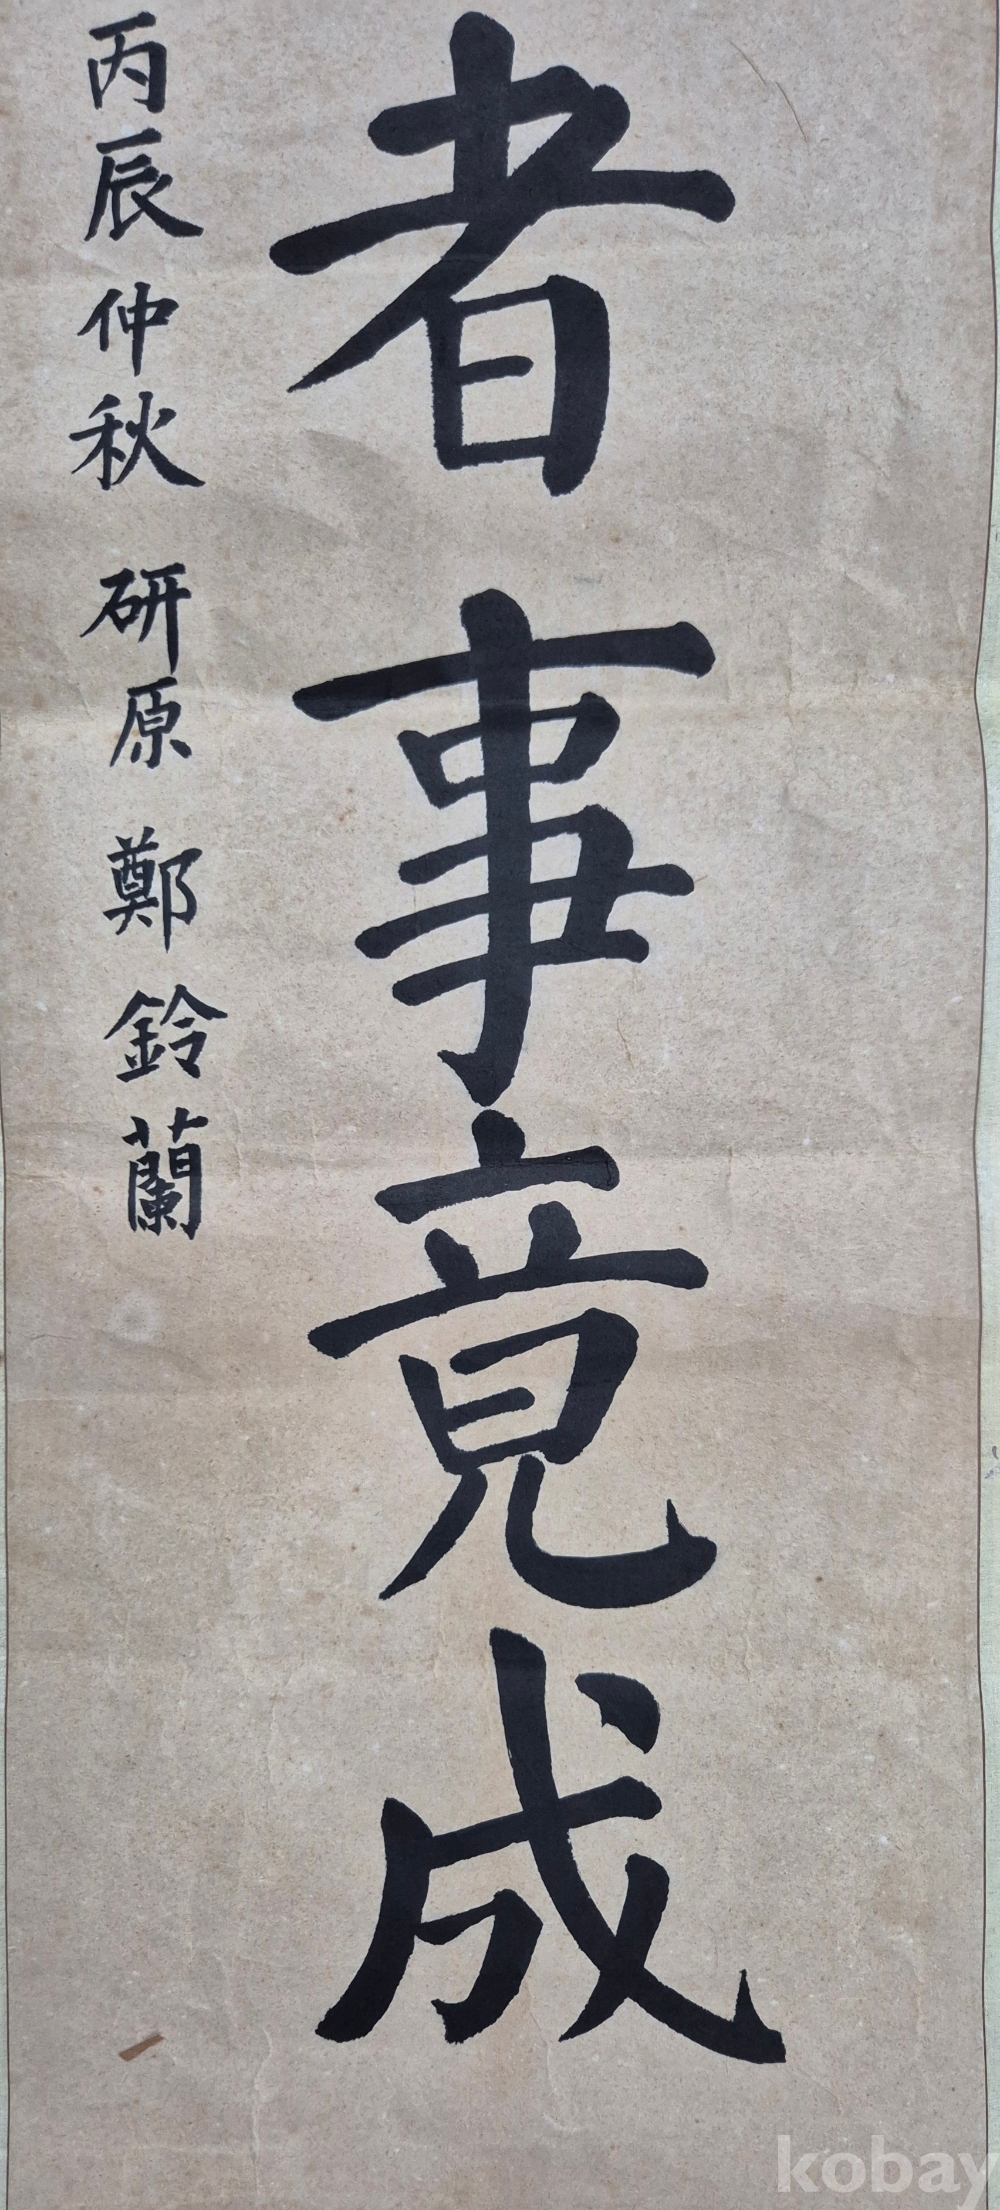 者事竟成
丙辰仲秋 研原 鄭鈴蘭
kobay